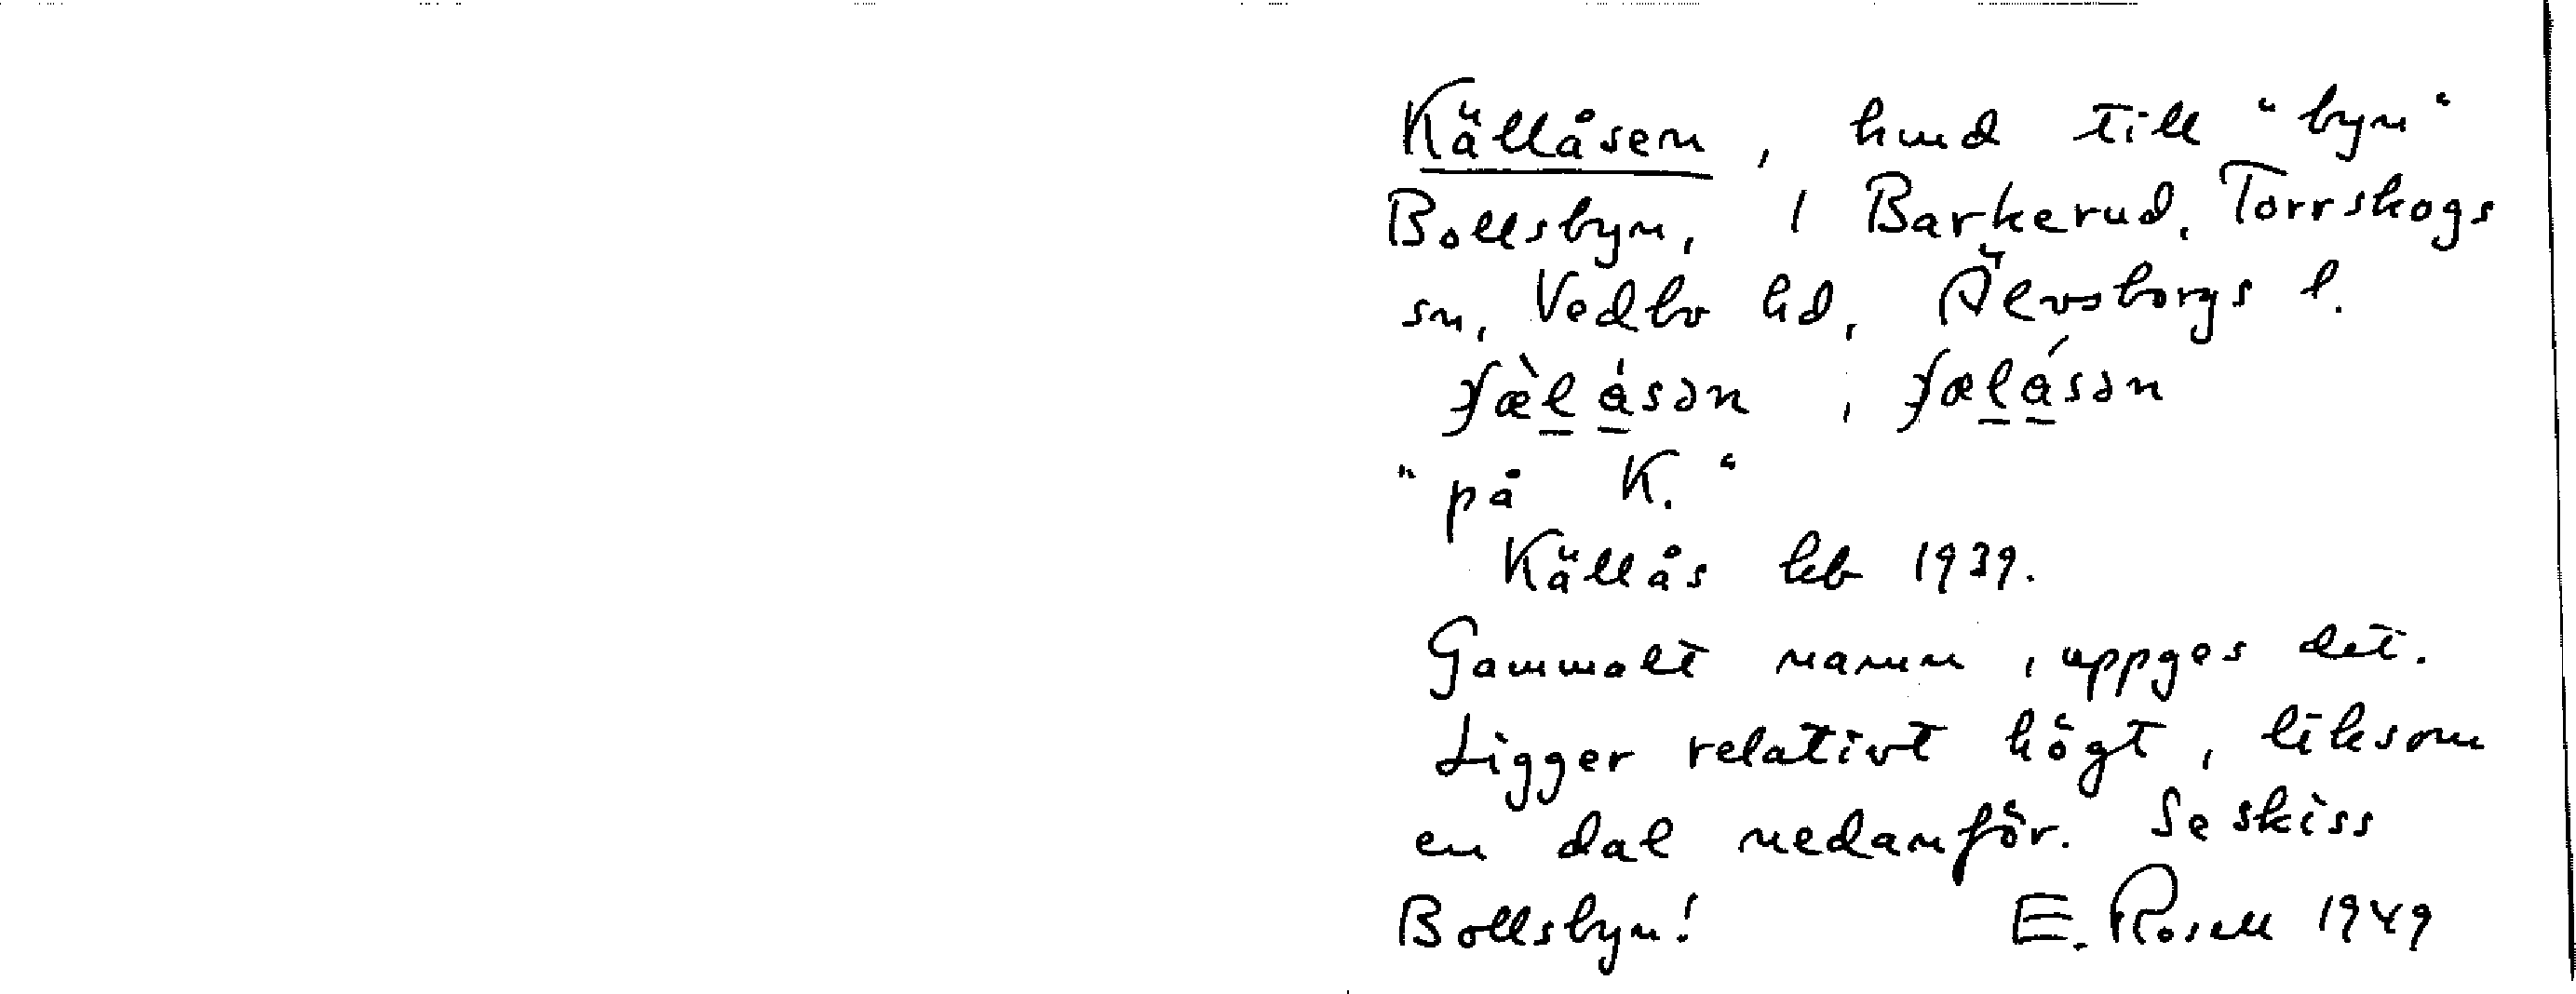 Källåsen, hmd till "byn"
Bollsbyn, 1 Barkerud, Torrskogs
sn, Vedbo hd, Älvsborgs l.
"på K."
Källås kb 1939.
Gammalt namn, uppges det.
Ligger relativt högt, liksom
en dal nedanför. Se skiss
Bollsbyn! E. Rosell 1949